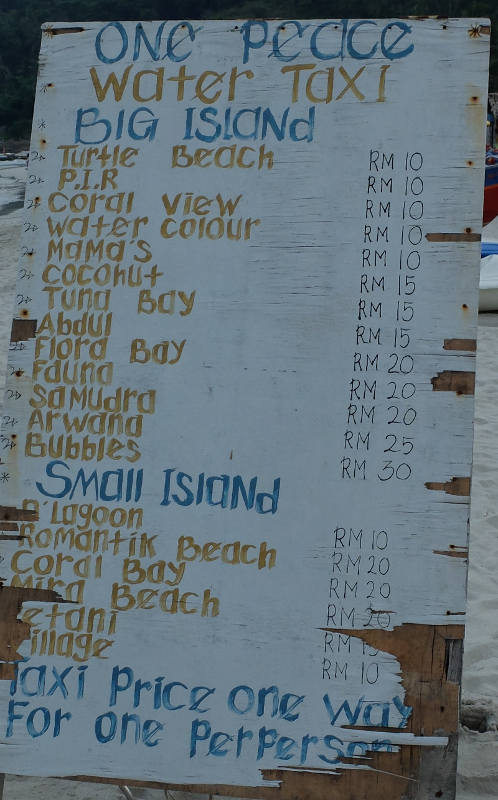 ONE Peace
Water Taxi
BIG ISLanD
Turtle Beach RM 10
P.I.R RM 10
Coral View RM 10
Water colour RM 10
MaMa's RM 10
Coconut RM 15
Tuna Bay RM 15
Abdul RM 15
Flora Bay RM 20
Fauna RM 20
Samudra RM 20
Arwana RM 25
Bubbles RM 30
Small Island
D'Lagoon RM 10
Romantik Beach RM 20
Coral Bay RM 20
Mira Beach RM 20
etani RM
illage RM 10
Taxi Price one way
For one PerPerson